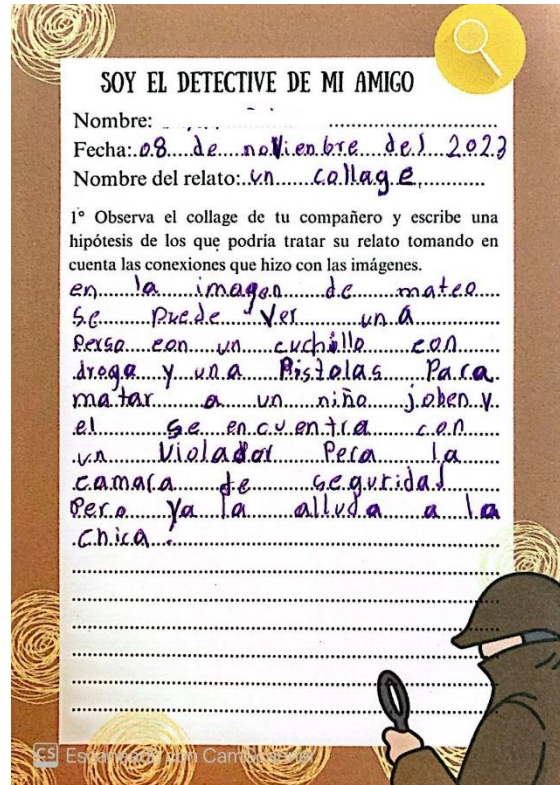 SOY EL DETECTIVE DE MI AMIGO
Nombre:
Fecha: 08 de novienbre del 2023
Nombre del relato: un collage
1° Observa el collage de tu compañero y escribe una
hipótesis de los que podría tratar su relato tomando en
cuenta las conexiones que hizo con las imágenes.
en la imagen de mateo
se puede ver una
perso con un cuchillo con
droga y una Pistolas Para
matar a un niño joben y
el se encuentra con
un Violador Pera la
camara de seguridad
Pero ya la alluda a la
chica.
CS Escaneado con CamScanner